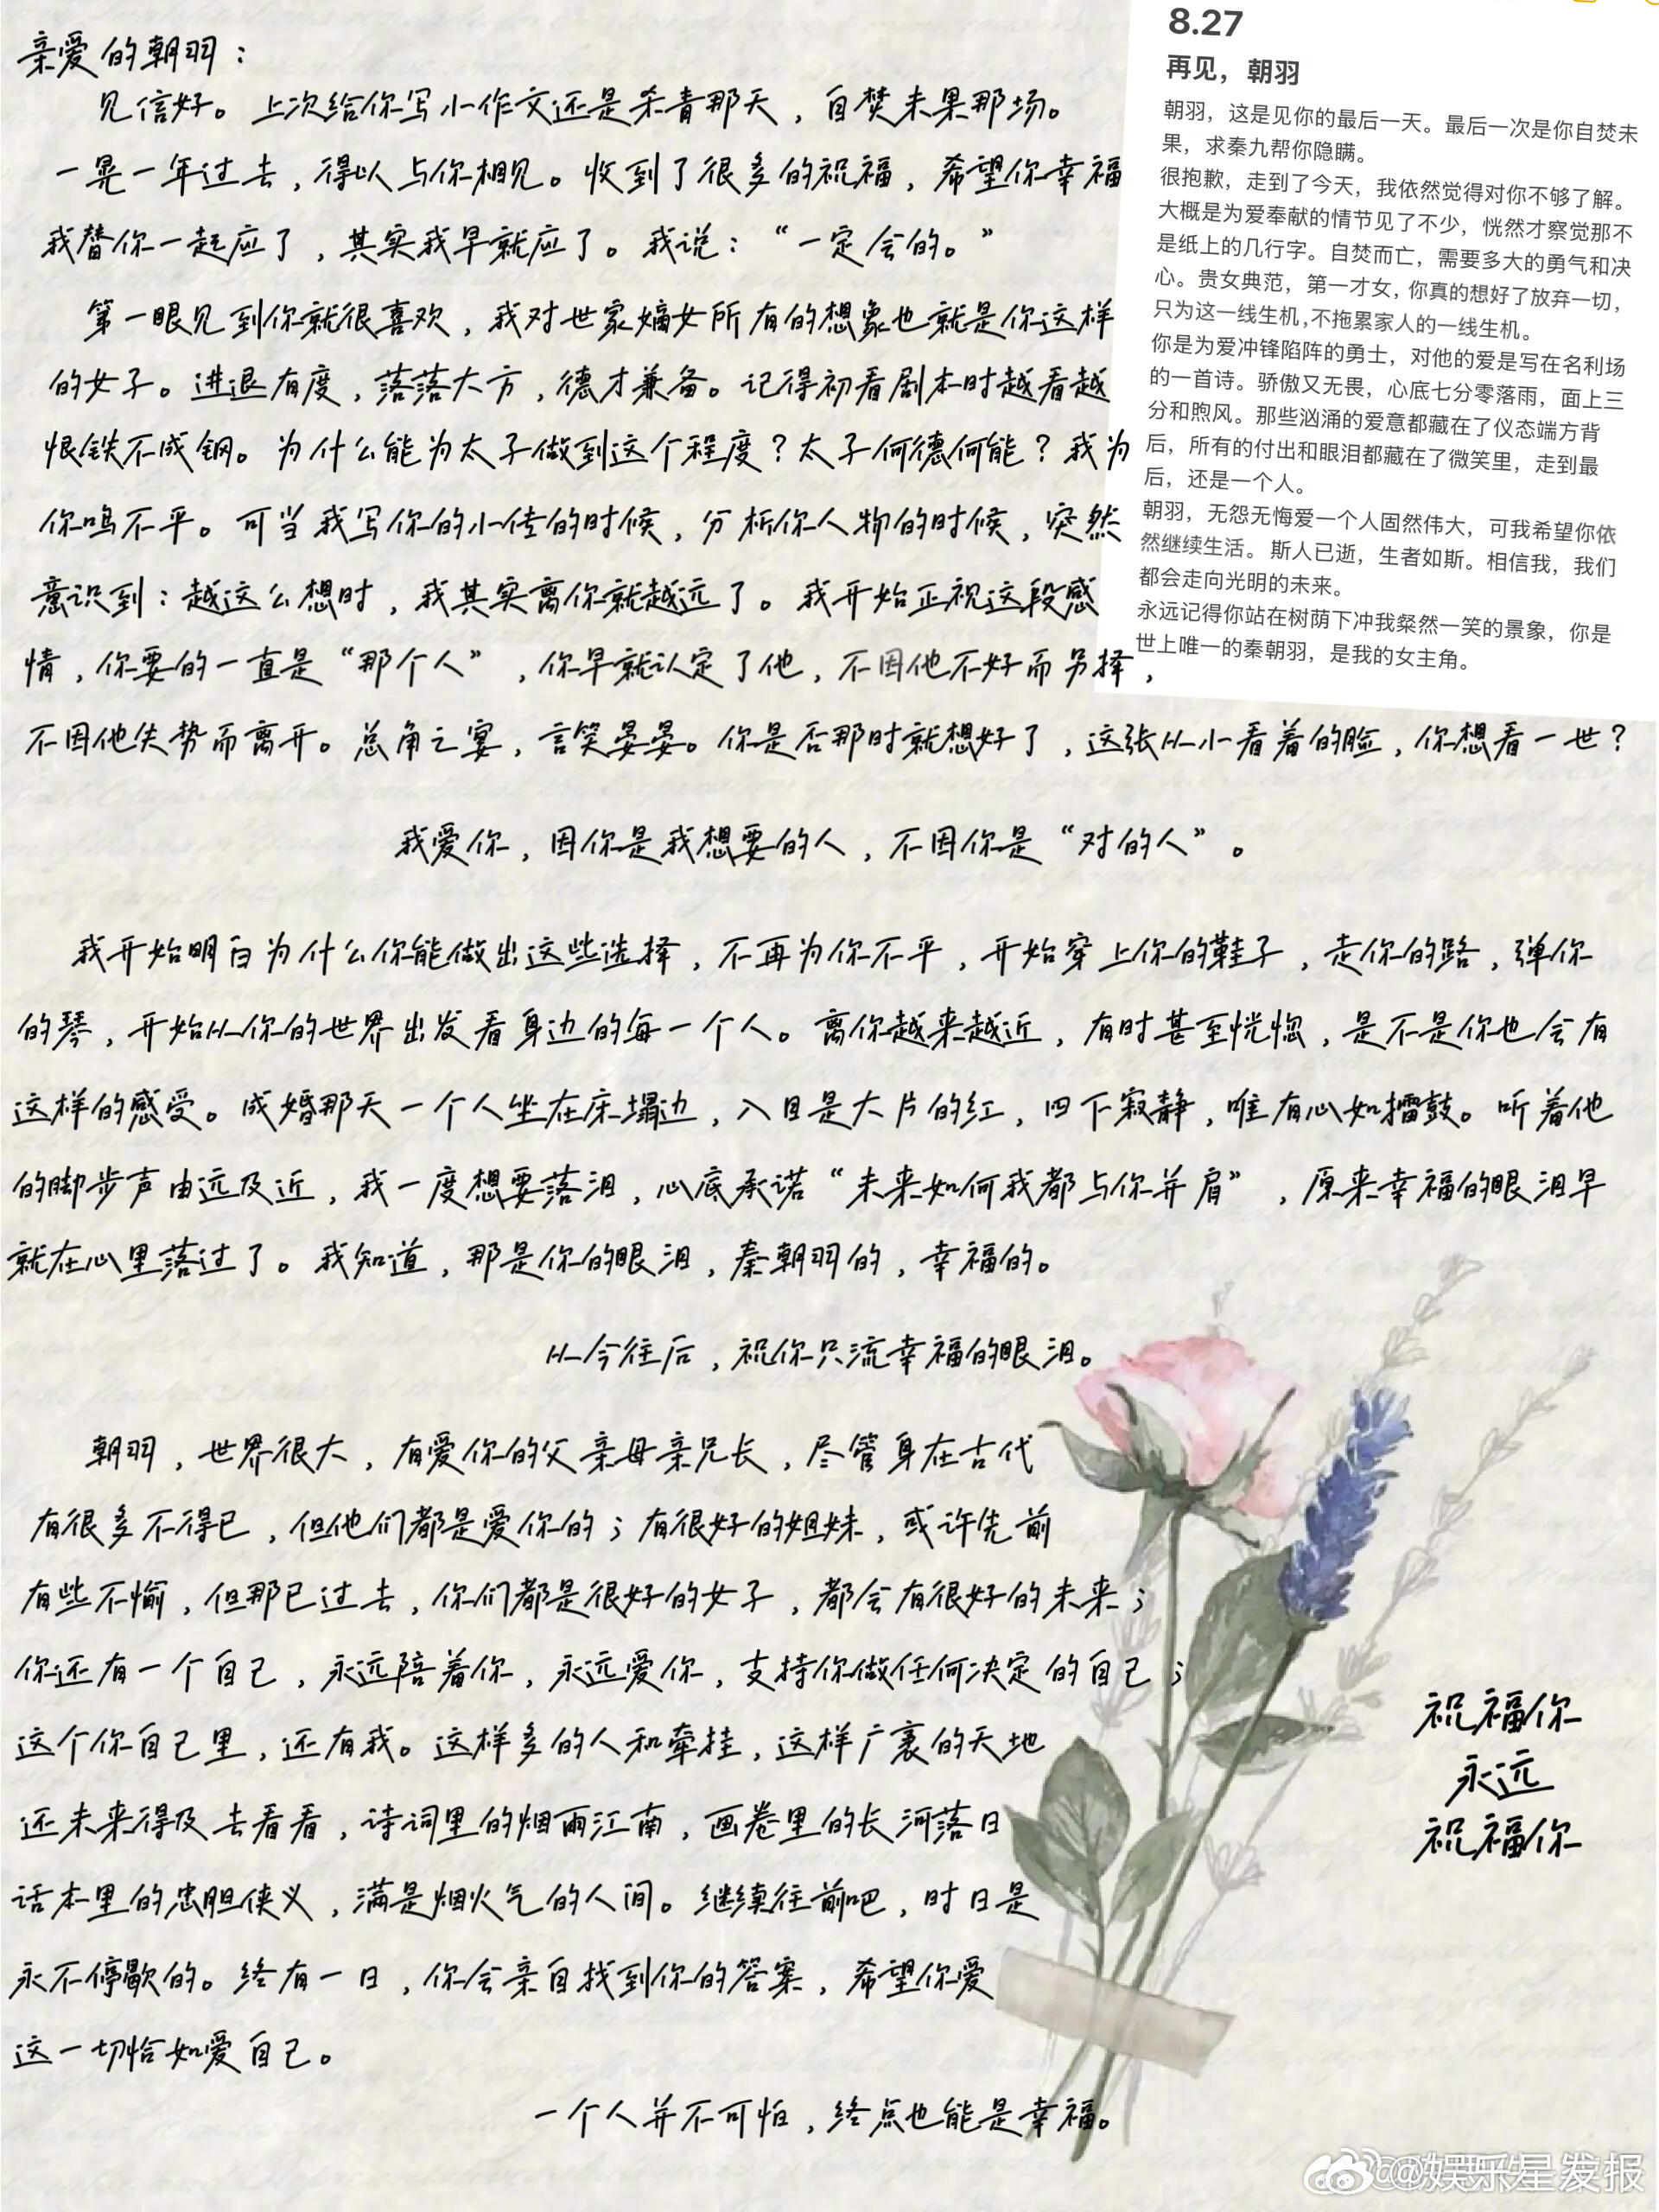 亲爱的朝羽：
见信好。上次给你写小作文还是杀青那天，自焚未果那场。
一晃一年过去，得以与你相见。收到了很多的祝福，希望你幸福
我替你一起应了，其实我早就应了。我说：“一定会的。”
第一眼见到你就很喜欢，我对世家嫡女所有的想象也就是你这样
的女子。进退有度，落落大方，德才兼备。记得初看剧本时越看越
恨铁不成钢。为什么能为太子做到这个程度？太子何德何能？我为
你鸣不平。可当我写你的小传的时候，分析你人物的时候，突然
意识到：越这么想时，我其实离你就越远了。我开始正视这段感
情，你要的一直是“那个人”，你早就认定了他，不因他不好而另择，
不因他失势而离开。总角之宴，言笑晏晏。你是否那时就想好了，这张从小看着的脸，你想看一世？
我爱你，因你是我想要的人，不因你是“对的人”。
我开始明白为什么你能做出这些选择，不再为你不平，开始穿上你的鞋子，走你的路，弹你
的琴，开始从你的世界出发看身边的每一个人。离你越来越近，有时甚至恍惚，是不是你也会有
这样的感受。成婚那天一个人坐在床塌边，入目是大片的红，四下寂静，唯有心如擂鼓。听着他
的脚步声由远及近，我一度想要落泪，心底承诺“未来如何我都与你并肩”，原来幸福的眼泪早
就在心里落过了。我知道，那是你的眼泪，秦朝羽的，幸福的。
从今往后，祝你只流幸福的眼泪。
朝羽，世界很大，有爱你的父亲母亲兄长，尽管身在古代
有很多不得已，但他们都是爱你的；有很好的姐妹，或许先前
有些不愉，但那已过去，你们都是很好的女子，都会有很好的未来；
你还有一个自己，永远陪着你，永远爱你，支持你做任何决定的自己；
这个你自己里，还有我。这样多的人和牵挂，这样广袤的天地
还未来得及去看看，诗词里的烟雨江南，画卷里的长河落日
话本里的忠胆侠义，满是烟火气的人间。继续往前吧，时日是
永不停歇的。终有一日，你会亲自找到你的答案，希望你爱
这一切恰如爱自己。
一个人并不可怕，终点也能是幸福。
祝福你
永远
祝福你
8.27
再见，朝羽
朝羽，这是见你的最后一天。最后一次是你自焚未
果，求秦九帮你隐瞒。
很抱歉，走到了今天，我依然觉得对你不够了解。
大概是为爱奉献的情节见了不少，恍然才察觉那不
是纸上的几行字。自焚而亡，需要多大的勇气和决
心。贵女典范，第一才女，你真的想好了放弃一切，
只为这一线生机，不拖累家人的一线生机。
你是为爱冲锋陷阵的勇士，对他的爱是写在名利场
的一首诗。骄傲又无畏，心底七分零落雨，面上三
分和煦风。那些汹涌的爱意都藏在了仪态端方背
后，所有的付出和眼泪都藏在了微笑里，走到最
后，还是一个人。
朝羽，无怨无悔爱一个人固然伟大，可我希望你依
然继续生活。斯人已逝，生者如斯。相信我，我们
都会走向光明的未来。
永远记得你站在树荫下冲我粲然一笑的景象，你是
世上唯一的秦朝羽，是我的女主角。
@娱乐星发报